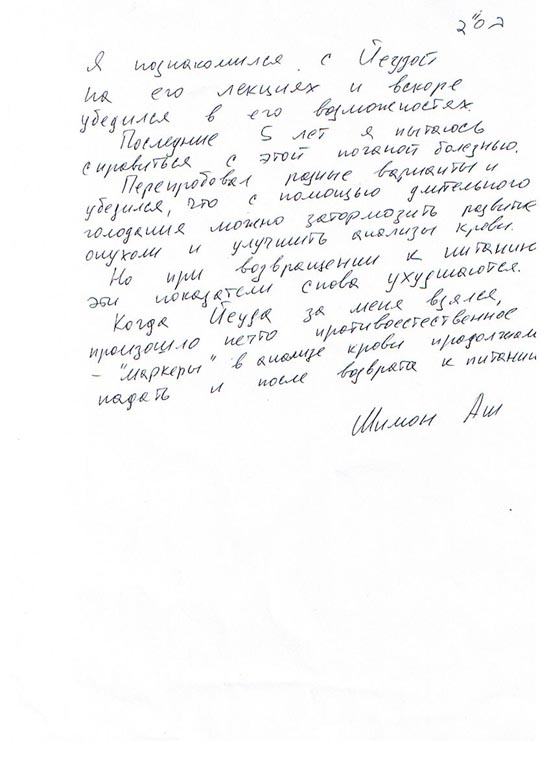 בס"ד
Я познакомился с Йегудой
на его лекциях и вскоре
убедился в его возможностях.
Последние 5 лет я пытаюсь
справиться с этой поганой болезнью.
Перепробовал разные варианты и
убедился, что с помощью длительного
голодания можно затормозить развитие
опухоли и улучшить анализы крови.
Но при возвращении к питанию
эти показатели снова ухудшаются.
Когда Йеуда за меня взялся,
произошло нечто противоестественное
- "маркеры" в анализе крови продолжали
падать и после возврата к питанию
Шимон Аш